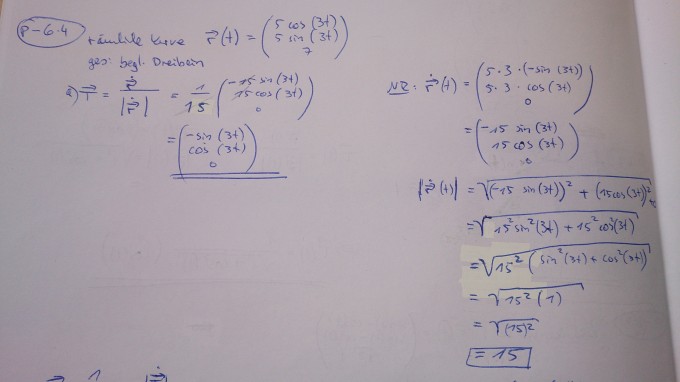 P-6.4
räumliche Kurve r⃗(t) = (5 cos (3t) 5 sin (3t) 7)
ges: begl. Dreibein
a) T⃗ = ṙ⃗ / |ṙ⃗| = 1/15 (-15 sin(3t) 15 cos(3t) 0)
= (-sin (3t) cos (3t) 0)
NR: ṙ⃗(t) = (5·3·(-sin (3t)) 5·3·cos(3t) 0)
= (-15 sin (3t) 15 cos(3t) 0)
|ṙ⃗(t)| = √((-15 sin(3t))² + (15cos(3t))²
= √(15² sin²(3t) + 15² cos²(3t))
= √(15² (sin²(3t) + cos²(3t)))
= √(15² (1))
= √((15)²)
= 15